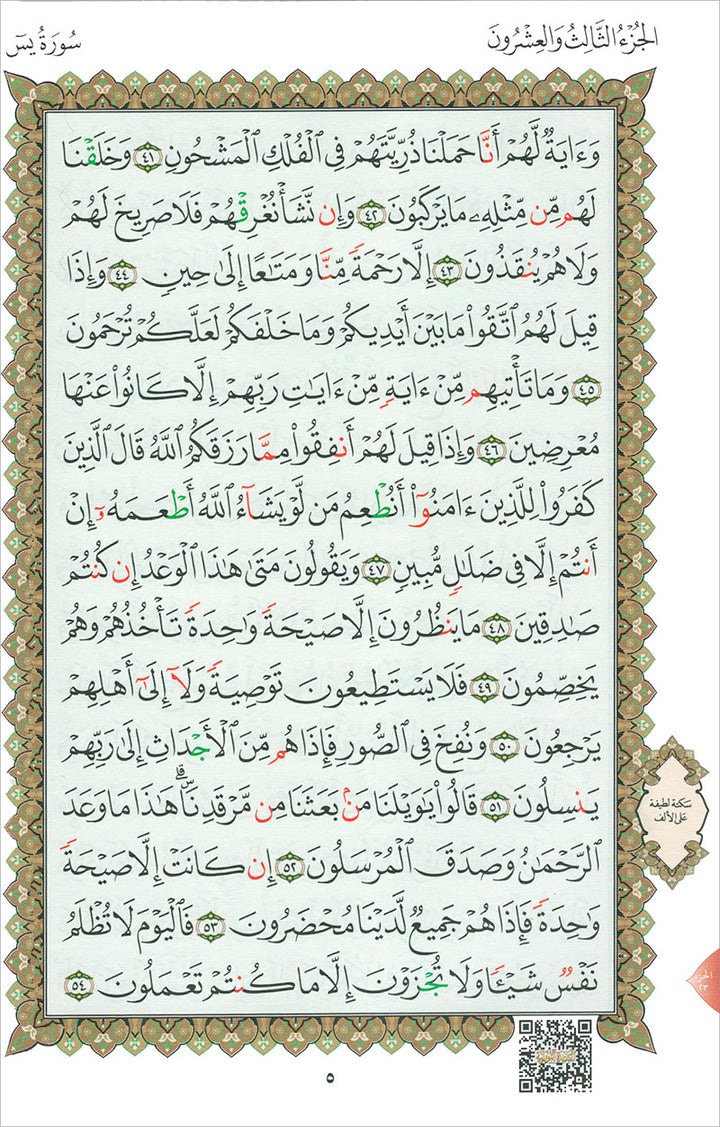 الجُزْءُ الثَّالِثُ وَالعِشْرُونَ
سُورَةُ يسٓ
وَءَايَةٌ لَّهُمْ أَنَّا حَمَلْنَا ذُرِّيَّتَهُمْ فِي ٱلْفُلْكِ ٱلْمَشْحُونِ ٤١ وَخَلَقْنَا
لَهُم مِّن مِّثْلِهِۦ مَا يَرْكَبُونَ ٤٢ وَإِن نَّشَأْ نُغْرِقْهُمْ فَلَا صَرِيخَ لَهُمْ
وَلَا هُمْ يُنقَذُونَ ٤٣ إِلَّا رَحْمَةً مِّنَّا وَمَتَٰعًا إِلَىٰ حِينٍ ٤٤ وَإِذَا
قِيلَ لَهُمُ ٱتَّقُوا۟ مَا بَيْنَ أَيْدِيكُمْ وَمَا خَلْفَكُمْ لَعَلَّكُمْ تُرْحَمُونَ
٤٥ وَمَا تَأْتِيهِم مِّنْ ءَايَةٍ مِّنْ ءَايَٰتِ رَبِّهِمْ إِلَّا كَانُوا۟ عَنْهَا
مُعْرِضِينَ ٤٦ وَإِذَا قِيلَ لَهُمْ أَنفِقُوا۟ مِمَّا رَزَقَكُمُ ٱللَّهُ قَالَ ٱلَّذِينَ
كَفَرُوا۟ لِلَّذِينَ ءَامَنُوٓا۟ أَنُطْعِمُ مَن لَّوْ يَشَآءُ ٱللَّهُ أَطْعَمَهُۥٓ إِنْ
أَنتُمْ إِلَّا فِي ضَلَٰلٍ مُّبِينٍ ٤٧ وَيَقُولُونَ مَتَىٰ هَٰذَا ٱلْوَعْدُ إِن كُنتُمْ
صَٰدِقِينَ ٤٨ مَا يَنظُرُونَ إِلَّا صَيْحَةً وَٰحِدَةً تَأْخُذُهُمْ وَهُمْ
يَخِصِّمُونَ ٤٩ فَلَا يَسْتَطِيعُونَ تَوْصِيَةً وَلَآ إِلَىٰٓ أَهْلِهِمْ
يَرْجِعُونَ ٥٠ وَنُفِخَ فِي ٱلصُّورِ فَإِذَا هُم مِّنَ ٱلْأَجْدَاثِ إِلَىٰ رَبِّهِمْ
يَنسِلُونَ ٥١ قَالُوا۟ يَٰوَيْلَنَا مَنۢ بَعَثَنَا مِن مَّرْقَدِنَا ۜ ۗ هَٰذَا مَا وَعَدَ
ٱلرَّحْمَٰنُ وَصَدَقَ ٱلْمُرْسَلُونَ ٥٢ إِن كَانَتْ إِلَّا صَيْحَةً
وَٰحِدَةً فَإِذَا هُمْ جَمِيعٌ لَّدَيْنَا مُحْضَرُونَ ٥٣ فَٱلْيَوْمَ لَا تُظْلَمُ
نَفْسٌ شَيْـًٔا وَلَا تُجْزَوْنَ إِلَّا مَا كُنتُمْ تَعْمَلُونَ ٥٤
سكتة لطيفة
على الألف
الجزء
٢٣
٥